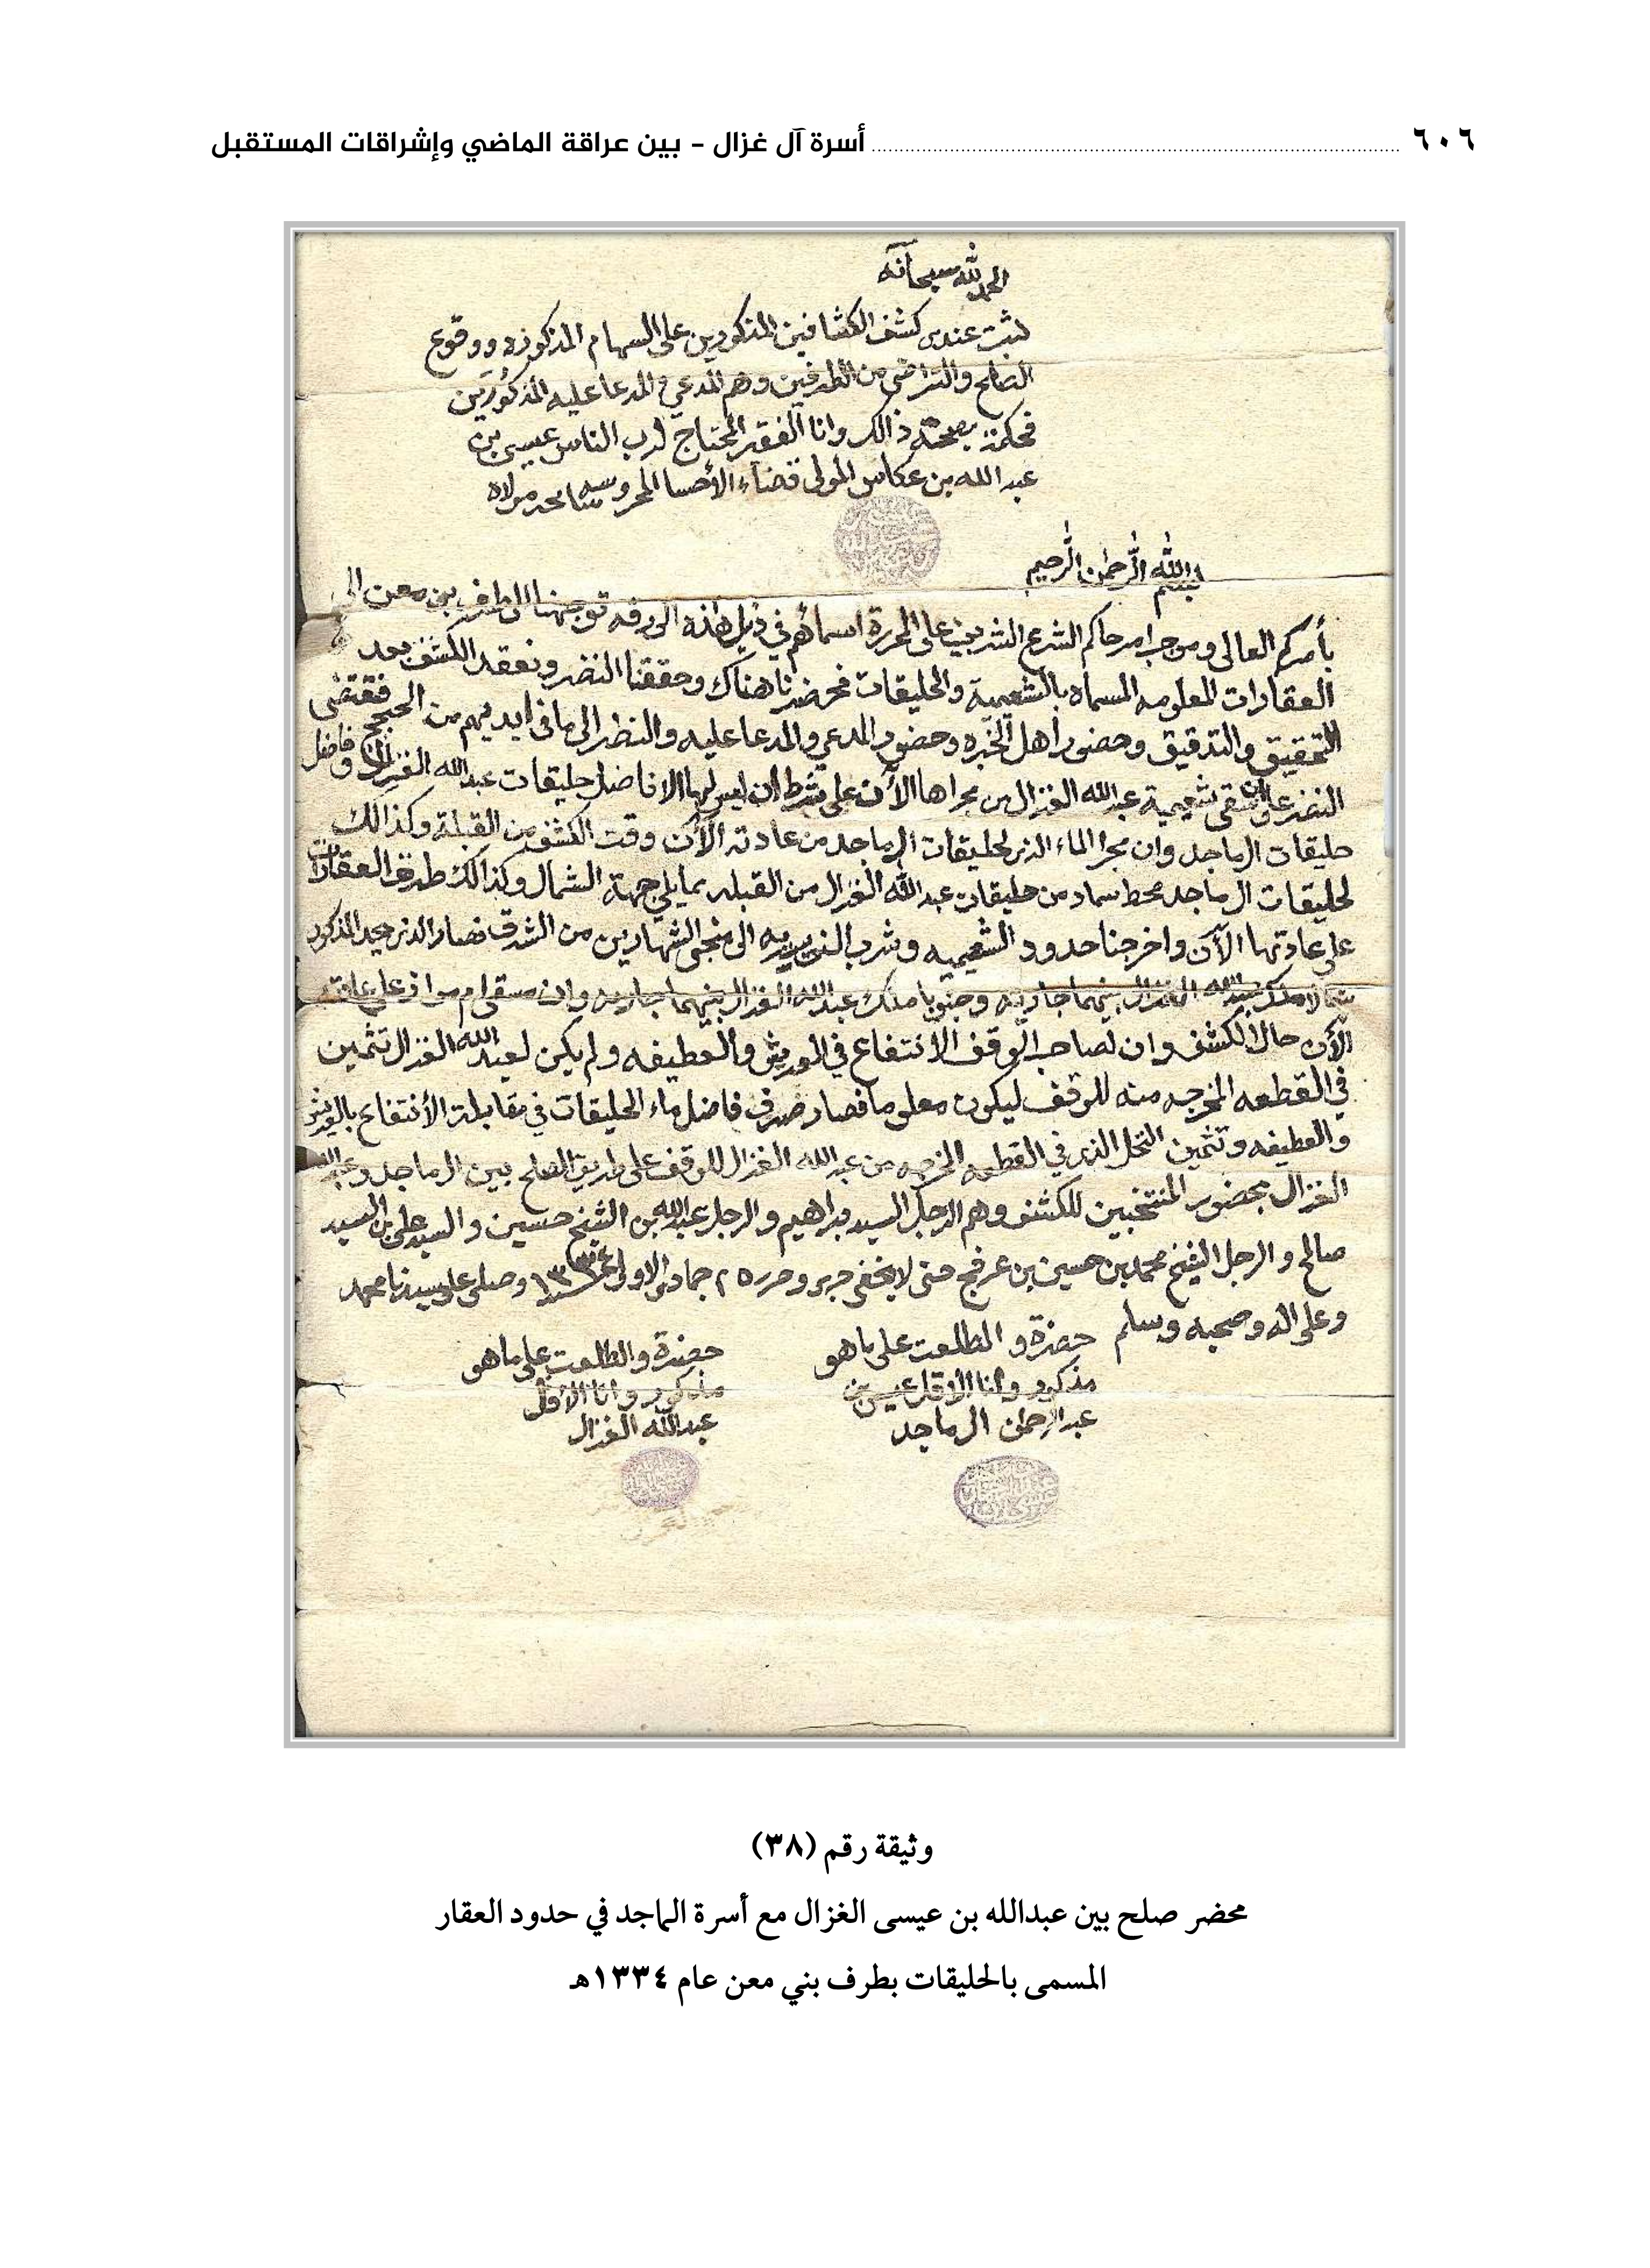 ٦٠٦ أسرة آل غزال - بين عراقة الماضي وإشراقات المستقبل
الحمد لله سبحانه
ثبت عندي كشف الكشافين المذكورين على السهام المذكوره ووقوع
الصلح والتراضي من الطرفين وهم المدعي والمدعا عليه المذكورين
فحكمة بصحة ذالك وانا الفقير المحتاج لرب الناس عيسى بن
عبد الله بن عكاس المولى قضاء الأحسا المحروسه
بسم الله الرحمن الرحيم
بأمركم العالي وموجب امر حاكم الشرع الشريف على المحررة اسمائهم في ذيل هذه الورقه توجهنا الى طرف بني معن الى
العقارات المعلومه المسماه بالشعيبية والحليقات فحضرنا هناك وحققنا النضر ونعقد الكشف بعد
التحقيق والتدقيق وحضور أهل الخبره وحضور المدعي والمدعا عليه والنضر الى ما في ايديهم من الحجج فقتضى
النضر على سقي شعيبية عبدالله الغزال من مجراها الآن على شرط ان ليس لها الا فاضل حليقات عبدالله الغزال وفاضل
حليقات الماجد وان مجرا الماء الذي لحليقات الماجد من عادته الآن وقت الكشف من القبلة وكذالك
لحليقات الماجد محط سماد من حليقات عبدالله الغزال من القبله مما يلي جهة الشمال وكذالك طرق العقارات
على عادتها الآن واخرجنا حدود الشعيبيه وشرب الذي
شمالا ملك عبدالله الغزال بينهما جاريه وجنوبا ملك عبدالله الغزال بينهما جاريه وان
الآن حال الكشف وان لصاحب الوقف الانتفاع في العريش والعطيفه ولم يكن لعبدالله الغزال تثمين
في القطعه المخرجه منه للوقف ليكون معلوما فصار صرف فاضل ماء الحليقات في مقابلة الأنتفاع بالعريش
والعطيفه وتثمين النخل الذي في القطعه المخرجه من عبدالله الغزال للوقف على طريق الصلح بين الماجد وعبدالله
الغزال بحضور المنتخبين للكشف وهم الرجل السيد براهيم والرجل عبدالله بن الشيخ حسين والسيد علي بن السيد
صالح والرجل الشيخ محمد بن حسين بن عرفج حتى لا يخفى جرى وحرر ٢٥ جمادى الاولى سنة ١٣٣٤ وصلى على سيدنا محمد
وعلى اله وصحبه وسلم
حضرة والطلعت على ما هو
مذكور وأنا الاقل عيسى بن
عبدالرحمن الماجد
حضرة والطلعت على ما هو
مذكور وانا الأقل
عبدالله الغزال
وثيقة رقم (٣٨)
محضر صلح بين عبدالله بن عيسى الغزال مع أسرة الماجد في حدود العقار
المسمى بالحليقات بطرف بني معن عام ١٣٣٤هـ